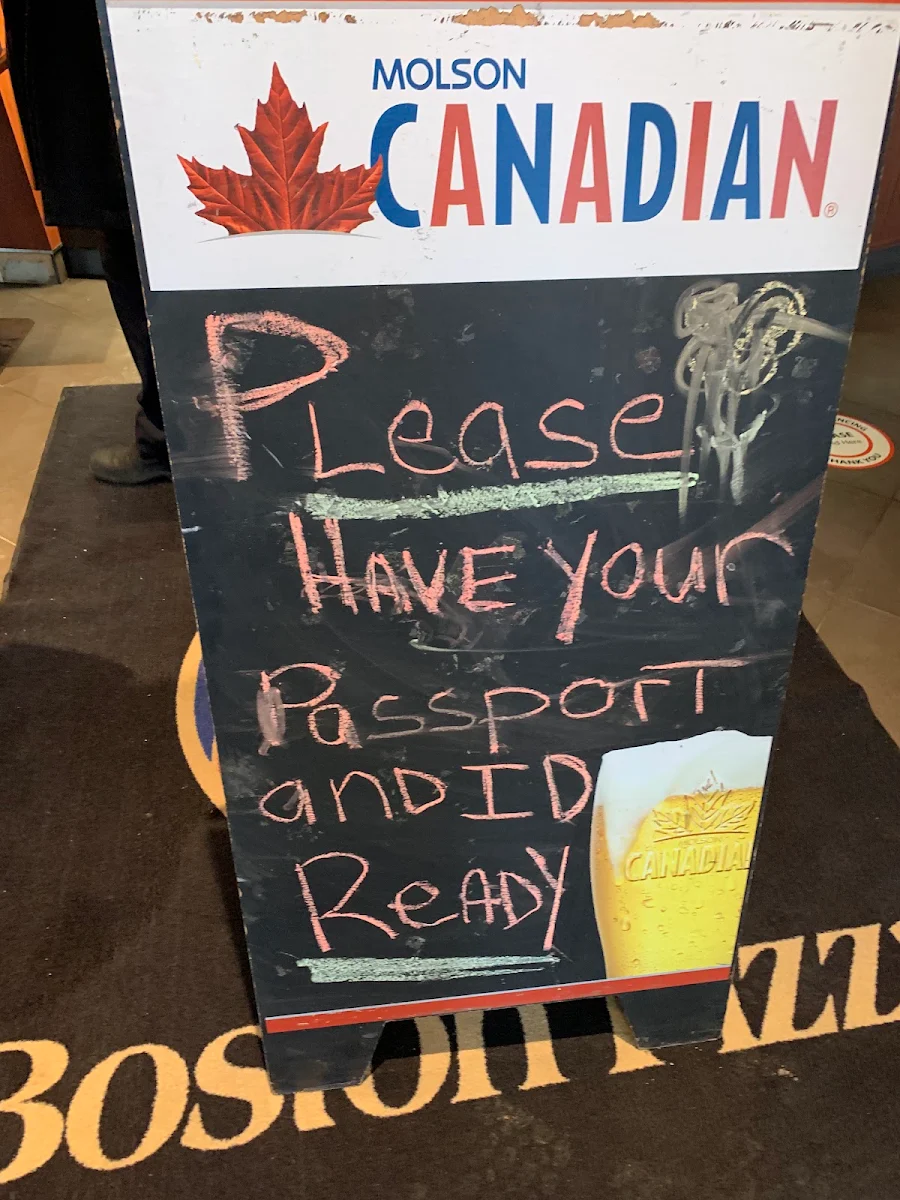 MOLSON
CANADIAN®
PLease
HAVE your
Passport
and ID
ReADY
CANADIA
BOSTON PIZZ
THANK YOU